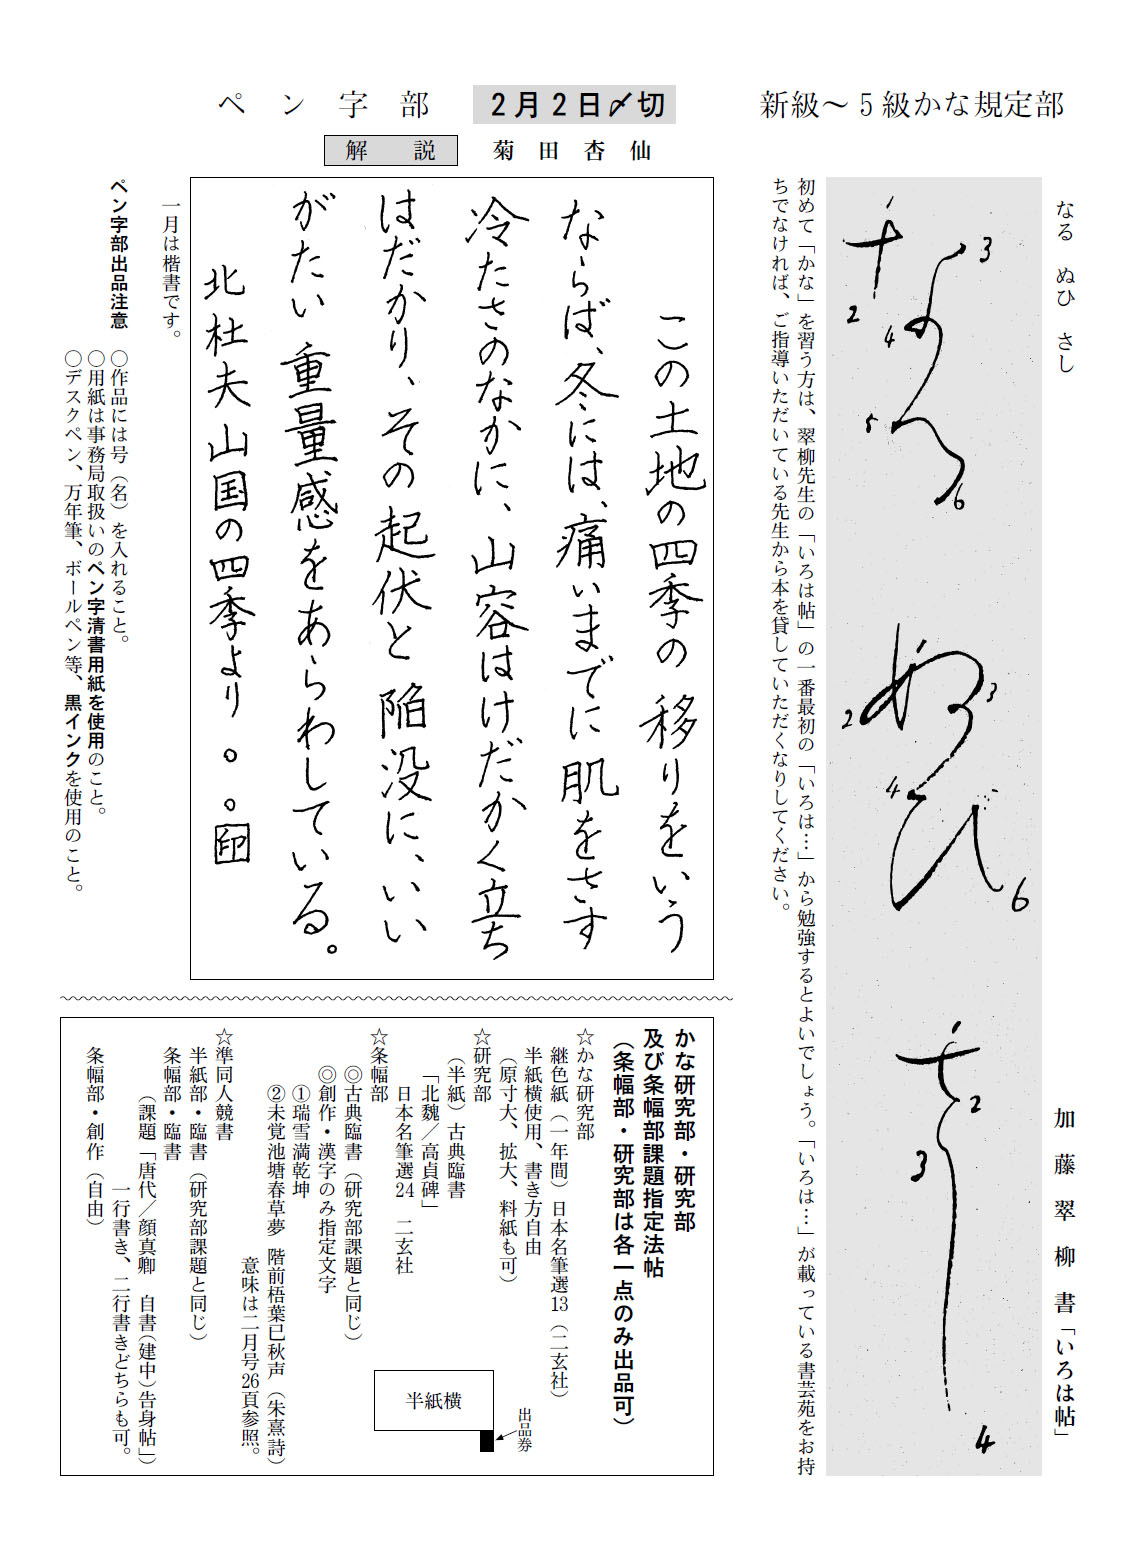 新級～5級かな規定部
なる　ぬひ　さし
加藤翠柳書「いろは帖」
1
2
3
4
5
6
なる
2
3
4
6
ぬひ
2
3
4
さし
初めて「かな」を習う方は、翠柳先生の「いろは帖」の一番最初の「いろは…」から勉強するとよいでしょう。「いろは…」が載っている書芸苑をお持
ちでなければ、ご指導いただいている先生から本を貸していただくなりしてください。
ペン字部
2月2日〆切
解説
菊田杏仙
この土地の四季の移りをいう
ならば、冬には、痛いまでに肌をさす
冷たさのなかに、山容はけだかく立ち
はだかり、その起伏と陥没に、いい
がたい重量感をあらわしている。
北杜夫山国の四季より。。印
一月は楷書です。
ペン字部出品注意
○作品には号（名）を入れること。
○用紙は事務局取扱いのペン字清書用紙を使用のこと。
○デスクペン、万年筆、ボールペン等、黒インクを使用のこと。
かな研究部・研究部
及び条幅部課題指定法帖
（条幅部・研究部は各一点のみ出品可）
☆かな研究部
継色紙（一年間）日本名筆選13（二玄社）
半紙横使用、書き方自由
（原寸大、拡大、料紙も可）
☆研究部
（半紙）古典臨書
「北魏／高貞碑」
日本名筆選24　二玄社
☆条幅部
◎古典臨書（研究部課題と同じ）
◎創作・漢字のみ指定文字
①瑞雪満乾坤
②未覚池塘春草夢　階前梧葉已秋声（朱熹詩）
意味は二月号26頁参照。
☆準同人競書
半紙部・臨書（研究部課題と同じ）
条幅部・臨書
（課題「唐代／顔真卿　自書（建中）告身帖」）
一行書き、二行書きどちらも可。
条幅部・創作（自由）
半紙横
出品券